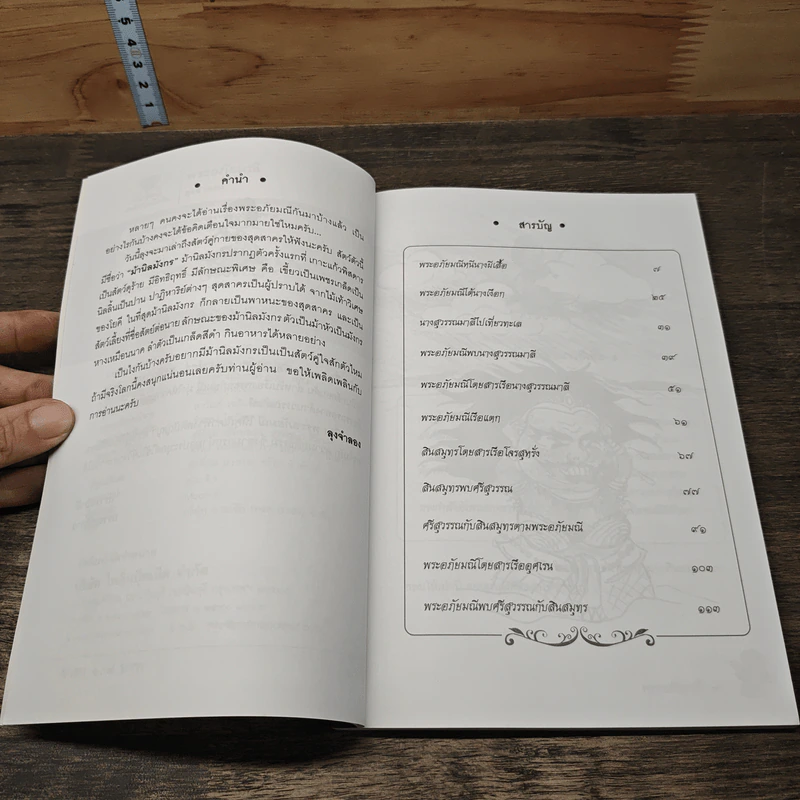 5
4
3
2
1
• คำนำ •
หลายๆ คนคงจะได้อ่านเรื่องพระอภัยมณีกันมาบ้างแล้ว เป็น
อย่างไรกันบ้างคงจะได้ข้อคิดเตือนใจมากมายใช่ไหมครับ...
วันนี้ลุงจะมาเล่าถึงสัตว์คู่กายของสุดสาครให้ฟังนะครับ สัตว์ตัวนี้
มีชื่อว่า "ม้านิลมังกร" ม้านิลมังกรปรากฏตัวครั้งแรกที่ เกาะแก้วพิสดาร
เป็นสัตว์ดุร้าย มีอิทธิฤทธิ์ มีลักษณะพิเศษ คือ เขี้ยวเป็นเพชรเกล็ดเป็น
นิลลิ้นเป็นปาน ปาฏิหาริย์ต่างๆ สุดสาครเป็นผู้ปราบได้ จากไม้เท้าวิเศษ
ของโยคี ในที่สุดม้านิลมังกร ก็กลายเป็นพาหนะของสุดสาคร และเป็น
สัตว์เลี้ยงที่ซื่อสัตย์ต่อนาย ลักษณะของม้านิลมังกร ตัวเป็นม้าหัวเป็นมังกร
หางเหมือนนาค ลำตัวเป็นเกล็ดสีดำ กินอาหารได้หลายอย่าง
เป็นไงกันบ้างครับอยากมีม้านิลมังกรเป็นเป็นสัตว์คู่ใจสักตัวไหม
ถ้ามีจริงโลกนี้คงสนุกแน่นอนเลยครับท่านผู้อ่าน ขอให้เพลิดเพลินกับ
การอ่านนะครับ
ลุงจำลอง
• สารบัญ •
พระอภัยมณีหนีนางผีเสื้อ ๗
พระอภัยมณีได้นางเงือก ๒๕
นางสุวรรณมาลีไปเที่ยวทะเล ๓๑
พระอภัยมณีพบนางสุวรรณมาลี ๓๙
พระอภัยมณีโดยสารเรือนางสุวรรณมาลี ๕๑
พระอภัยมณีเรือแตก ๖๑
สินสมุทรโดยสารเรือโจรสุหรั่ง ๖๗
สินสมุทรพบศรีสุวรรณ ๗๗
ศรีสุวรรณกับสินสมุทรตามพระอภัยมณี ๙๑
พระอภัยมณีโดยสารเรืออุศเรน ๑๐๓
พระอภัยมณีพบศรีสุวรรณกับสินสมุทร ๑๑๓